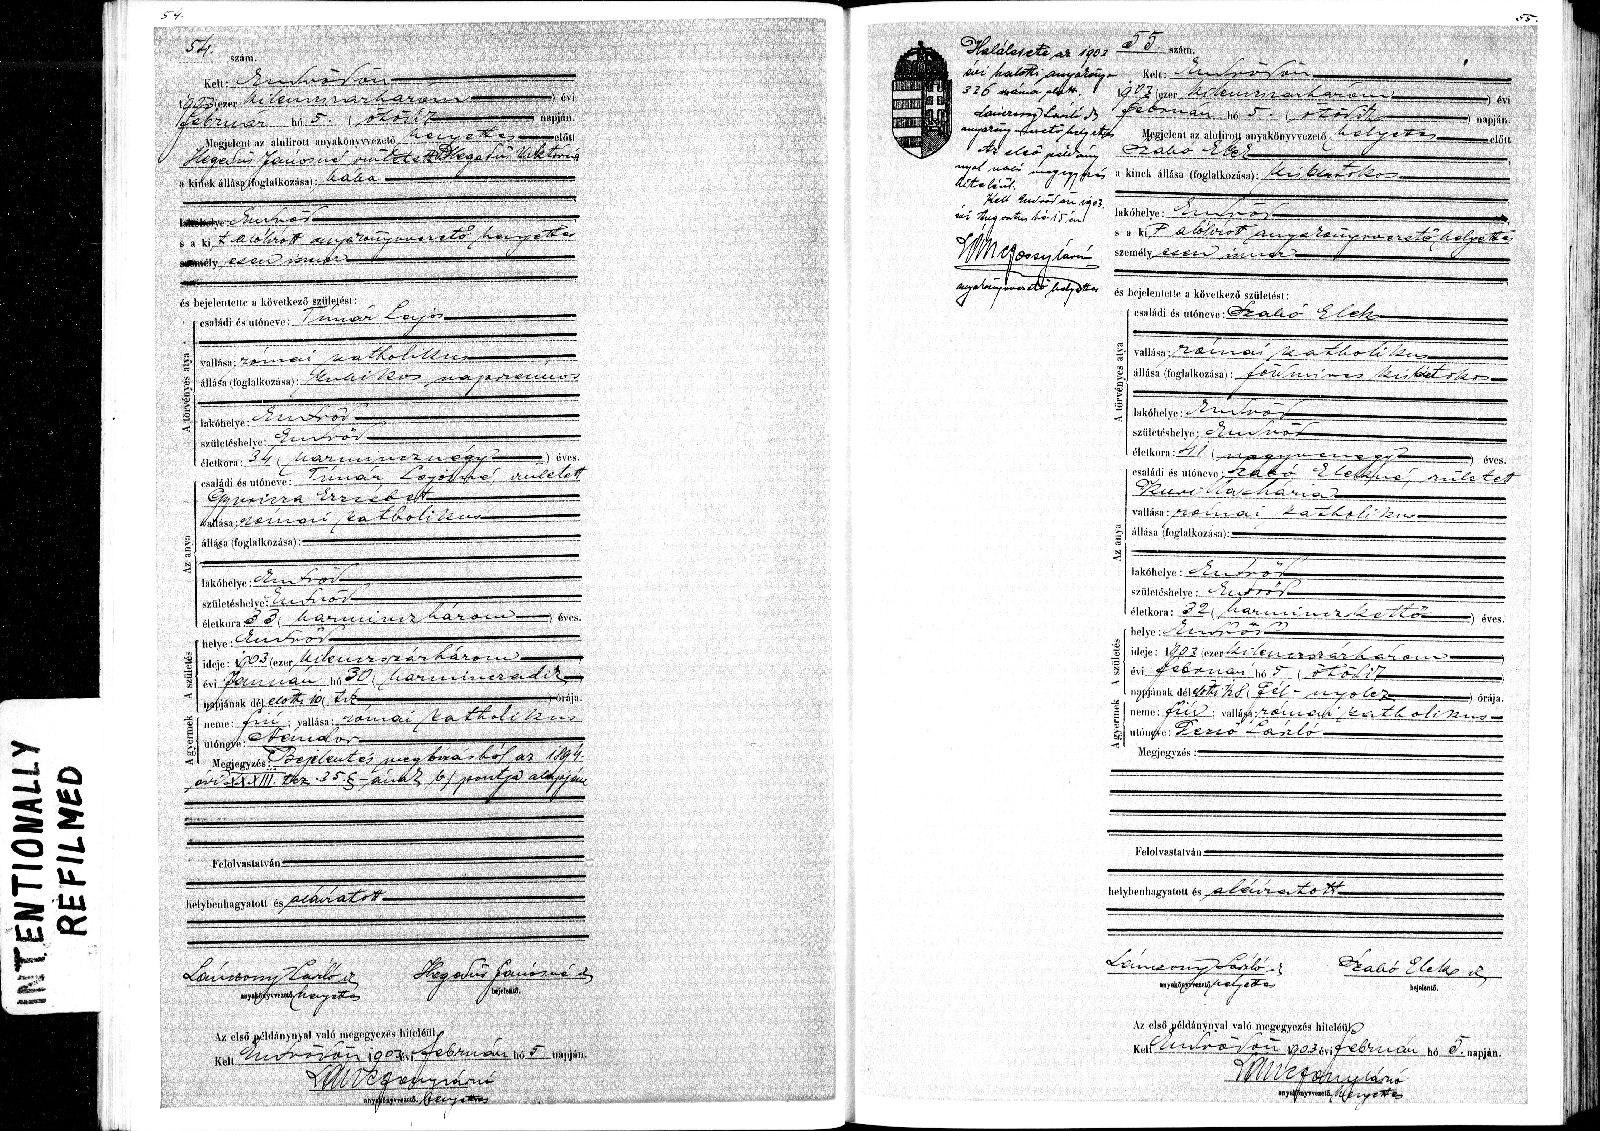 54.
54.
szám.
Kelt: Endrődön
1903 (ezer kilenczszázhárom) évi
február hó 5. (ötödik) napján.
Megjelent az alulirott anyakönyvvezető helyettes előtt
Hegedüs Jánosné született Hegedüs Viktoria
a kinek állása (foglalkozása): bába
lakóhelye: Endrőd
s a kit alólirott anyakönyvvezető helyettes
személyesen ismer
és bejelentette a következő születést:
A törvényes atya
családi és utóneve: Timár Lajos
vallása: római katholikus
állása (foglalkozása): kubikos napszámos
lakóhelye: Endrőd
születéshelye: Endrőd
életkora: 34 (harmincznégy) éves.
Az anya
családi és utóneve: Timár Lajosné, született
Erzsébet
vallása: római katholikus
állása (foglalkozása):
lakóhelye: Endrőd
születéshelye: Endrőd
életkora: 33 (harminczhárom) éves.
A születés
helye: Endrőd
ideje: 1903 (ezer kilenczszázhárom)
évi Január hó 30 (harminczadik)
napjának dél előtti 10 (tíz) órája.
A gyermek
neme: fiú; vallása: római katholikus
utóneve: Nándor
Megjegyzés: Bejelentés megbizásból az 1894.
évi XXXIII. tkz. 35 §-ának b) pontja alapján
Felolvastatván
helybenhagyatott és aláiratott
Lánczony László
anyakönyvvezető helyettes
Hegedüs Jánosné
bejelentő.
Az első példánynyal való megegyezés hiteléül.
Kelt Endrődön 1903 évi február hó 5 napján.
anyakönyvvezető helyettes
55.
Halálesete az 1903
évi halotti anyakönyv
326 száma alatt.
Lánczony László
anyakönyvvezető helyettes
Az első példány
nyal való megegyezés
hiteléül.
Kelt Endrődön 1903.
évi Augusztus hó 15 én
anyakönyvvezető helyettes
55 szám.
Kelt: Endrődön
1903 (ezer kilenczszázhárom) évi
február hó 5. (ötödik) napján.
Megjelent az alulirott anyakönyvvezető helyettes előtt
Szabó Elek
a kinek állása (foglalkozása): kisbirtokos
lakóhelye: Endrőd
s a kit alólirott anyakönyvvezető helyettes
személyesen ismer
és bejelentette a következő születést:
A törvényes atya
családi és utóneve: Szabó Elek
vallása: római katholikus
állása (foglalkozása): földmíves kisbirtokos
lakóhelye: Endrőd
születéshelye: Endrőd
életkora: 41 (negyvenegy) éves.
Az anya
családi és utóneve: Szabó Elekné, született
vallása: római katholikus
állása (foglalkozása):
lakóhelye: Endrőd
születéshelye: Endrőd
életkora: 32 (harminczkettő) éves.
A születés
helye: Endrőd
ideje: 1903 (ezer kilenczszázhárom)
évi február hó 5 (ötödik)
napjának dél előtti ½8 (fél-nyolcz) órája.
A gyermek
neme: fiú; vallása: római katholikus
utóneve: László
Megjegyzés:
Felolvastatván
helybenhagyatott és aláiratott
Lánczony László
anyakönyvvezető helyettes
Szabó Elek
bejelentő.
Az első példánynyal való megegyezés hiteléül
Kelt Endrődön 1903 évi február hó 5. napján.
anyakönyvvezető helyettes
INTENTIONALLY
REFILMED